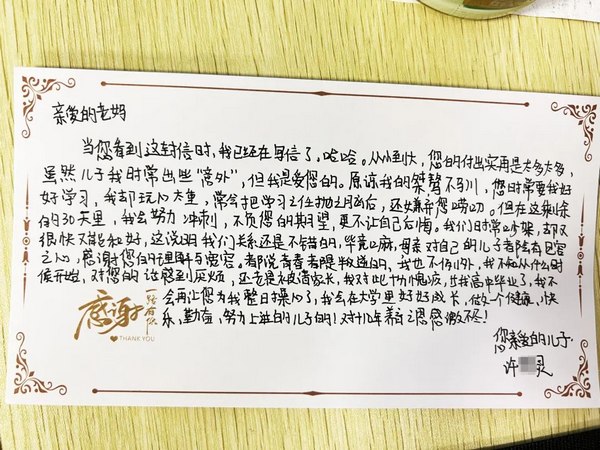 亲爱的老妈
当您看到这封信时,我已经在写信了,哈哈。从小到大,您的付出实再是太多太多,
虽然儿子我时常出些“意外”,但我是爱您的。原谅我的桀骜不驯,您时常要我好
好学习,我却玩心太重,常会把学习之任抛之脑后,还嫌弃您唠叨。但在这剩余
的30天里,我会努力冲刺,不负您的期望,更不让自己后悔。我们时常吵架,却又
很快又能和好,这说明我们关系还是不错的,毕竟嘛,母亲对自己的儿子都陆有包容
之心,感谢您的理解与宽容。都说青春都是叛逆的,我也不例外,我不知从什么时
候开始,对您的话感到厌烦,还老是被请家长,我对此十分愧疚,过我高中毕业了,我不
会再让您为我整日操心了,我会在大学里好好成长,做一个健康、快
乐,勤奋,努力上进的儿子的!对十八年养育之恩感激不尽!
您亲爱的儿子
许 灵
感谢
一路有你
THANK YOU